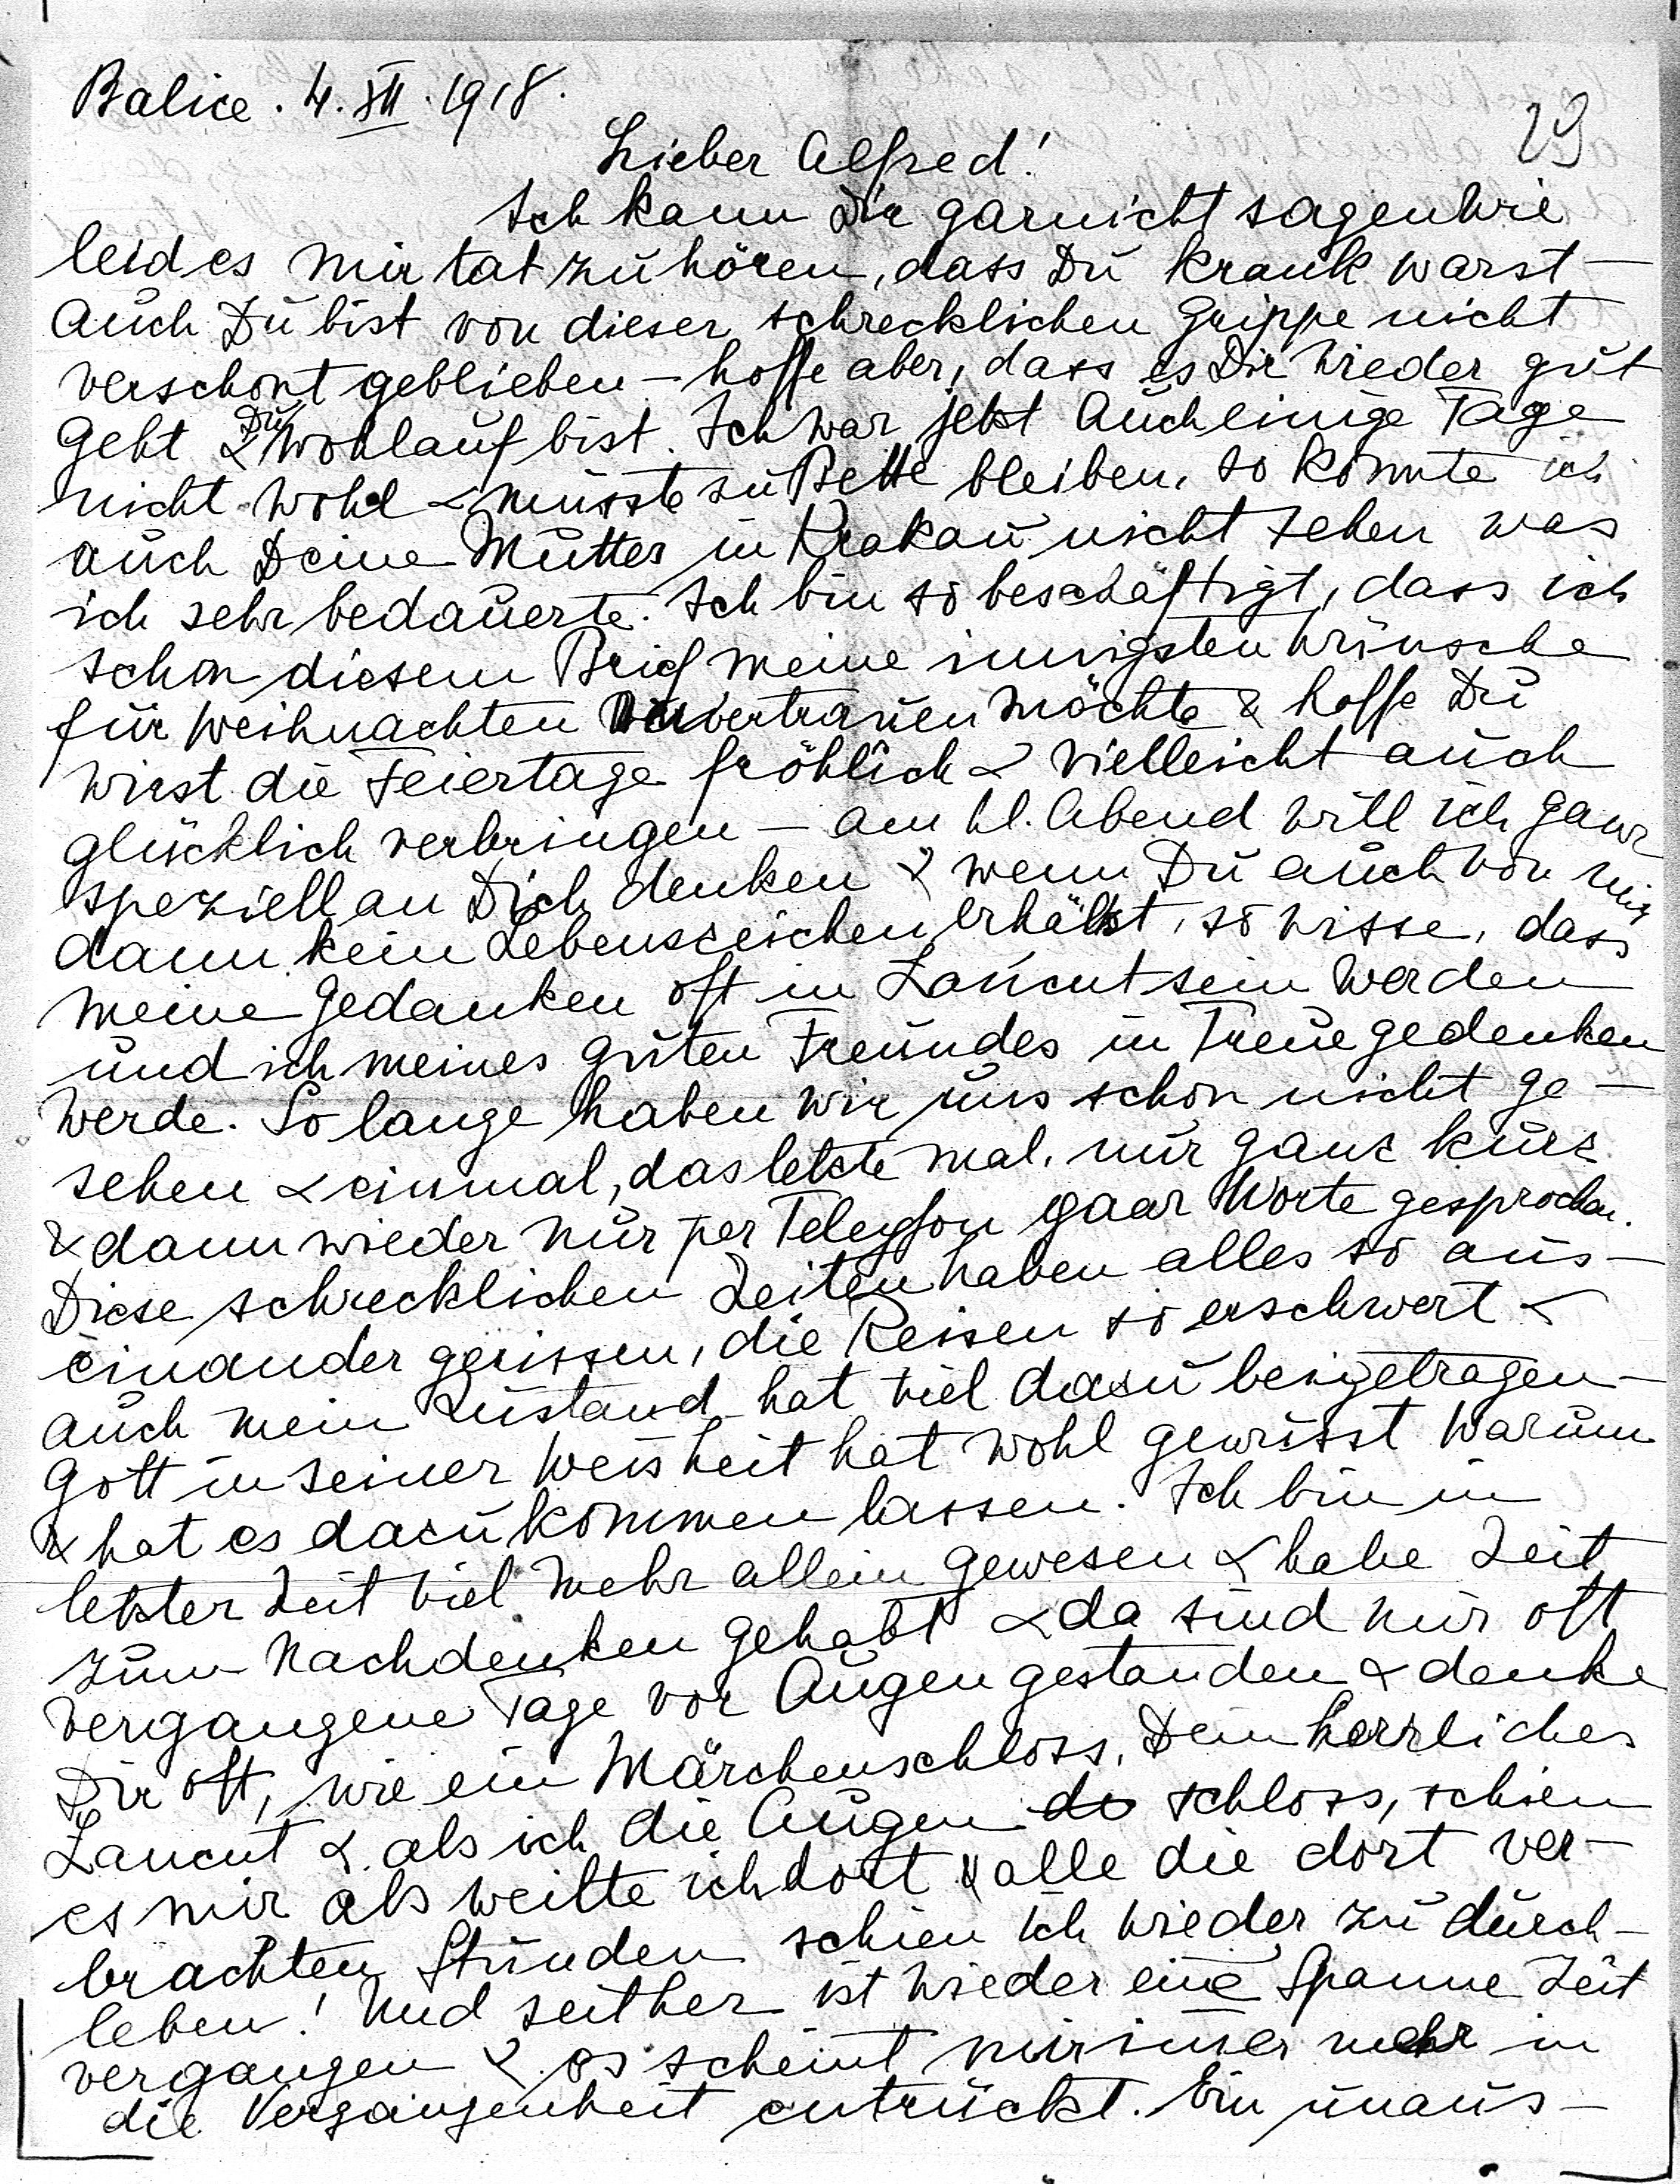 Balice . 4. XII. 1918.
29
Lieber Alfred!
Ich kann Dir garnicht sagen wie
leid es mir tat zu hören, dass Du krank warst —
Auch Du bist von dieser schrecklichen Grippe nicht
verschont geblieben — hoffe aber, dass es Dir wieder gut
geht & Du wohlauf bist. Ich war jetzt auch einige Tage
nicht wohl & musste zu Bette bleiben, so konnte ich
auch Deine Mutter in Krakau nicht sehen was
ich sehr bedauerte. Ich bin so beschäftigt, dass ich
schon diesem Brief meine innigsten Wünsche
für Weihnachten anvertrauen möchte & hoffe Du
wirst die Feiertage fröhlich & vielleicht auch
glücklich verbringen — am hl. Abend will ich ganz
speziell an Dich denken & wenn Du auch von mir
dann kein Lebenszeichen erhältst, so wisse, dass
meine Gedanken oft in Lańcut sein werden
und ich meines guten Freundes in Treue gedenken
werde. So lange haben wir uns schon nicht ge-
sehen & einmal, das letzte mal, nur ganz kurz
& dann wieder nur per Telefon paar Worte gesprochen.
Diese schrecklichen Zeiten haben alles so aus-
einander gerissen, die Reisen so erschwert &
auch mein Zustand hat viel dazu beigetragen —
Gott in seiner Weisheit hat wohl gewusst warum
& hat es dazu kommen lassen. Ich bin in
letzter Zeit viel mehr allein gewesen & habe Zeit
zum Nachdenken gehabt & da sind mir oft
vergangene Tage vor Augen gestanden & denke
Dir oft, wie ein Märchenschloss, Dein herrliches
Lancut & als ich die Augen do schloss, schien
es mir als weilte ich dort & alle die dort ver-
brachten Stunden schien ich wieder zu durch-
leben! Und seither ist wieder eine Spanne Zeit
vergangen & es scheint mir imer mehr in
die Vergangenheit entrückt. Ein unaus-